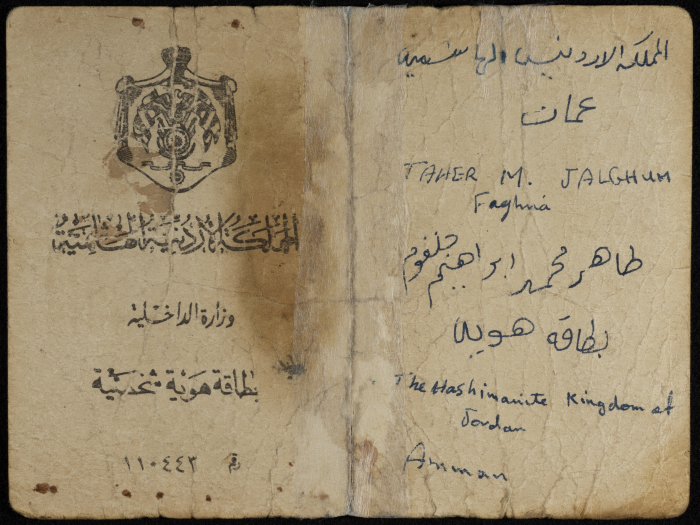 المملكة الاردنية الهاشمية
وزارة الداخلية
بطاقة هوية شخصية
رقم ١١٠٤٤٣
المملكة الاردنيه الهاشميه
عمان
TAHER M. JALGHUM
Faghna
طاهر محمد ابراهيم جلغوم
بطاقة هويه
The Hashimanite Kingdom of
Jordan
Amman